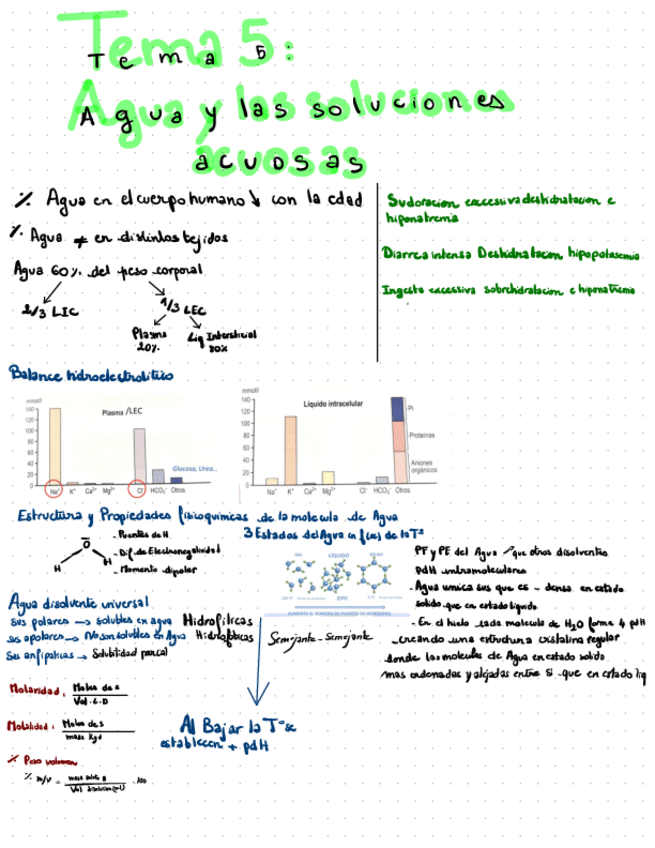 Tema 5:
Agua y las soluciones
acuosas
% Agua en el cuerpo humano ↓ con la edad
% Agua ≠ en distintos tejidos
Agua 60% del peso corporal
2/3 LIC
1/3 LEC
Plasma
20%
Liq Intersticial
80%
Sudoracion excessiva deshidratacion e
hiponatremia
Diarrea intensa Deshidratacion hipopotasemia
Ingesta excessiva sobrehidratacion e hiponatremia
Balance hidroelectrolitico
mmol/l
Plasma /LEC
160
140
120
100
80
60
40
20
0
Na⁺ K⁺ Ca²⁺ Mg²⁺ Cl⁻ HCO₃⁻ Otros
Glucosa, Urea...
mmol/l
Líquido intracelular
140
120
100
80
60
40
20
0
Na⁺ K⁺ Ca²⁺ Mg²⁺ Cl⁻ HCO₃⁻ Otros
Pi
Proteínas
Aniones
orgánicos
Estructura y Propiedades fisicoquimicas de la molecula de Agua
O
H H
- Puentes de H
- Dif. de Electronegatividad
- Momento dipolar
3 Estados del Agua en f(x) de la Tª
GAS LÍQUIDO SÓLIDO
100 ºC 25ºC 0 ºC
AUMENTA EL NÚMERO DE PUENTES DE HIDRÓGENO
PF y PE del Agua que otros disolventes
pdH intramoleculares
- Agua unica sus que es - densa en estado
solido que en estado liquido
- En el hielo cada molecula de H₂O forma 4 pdH
creando una estructura cristalina regular
donde las moleculas de Agua en estado solido
mas ordenadas y alejadas entre si que en estado liq
Agua disolvente universal
sus polares → solubles en agua Hidrofilicas
sus apolares → No son solubles en Agua Hidrofobicas
Sus anfipaticas → Solubilidad parcial
Semejante - Semejante
Al Bajar la Tª se
establecen + pdH
Molaridad: Moles de s
Vol. L. D
Molalidad: Moles de s
masa Kg d
% Peso volumen
% m/v = masa soluto g · 100
Vol disolucion (ml)